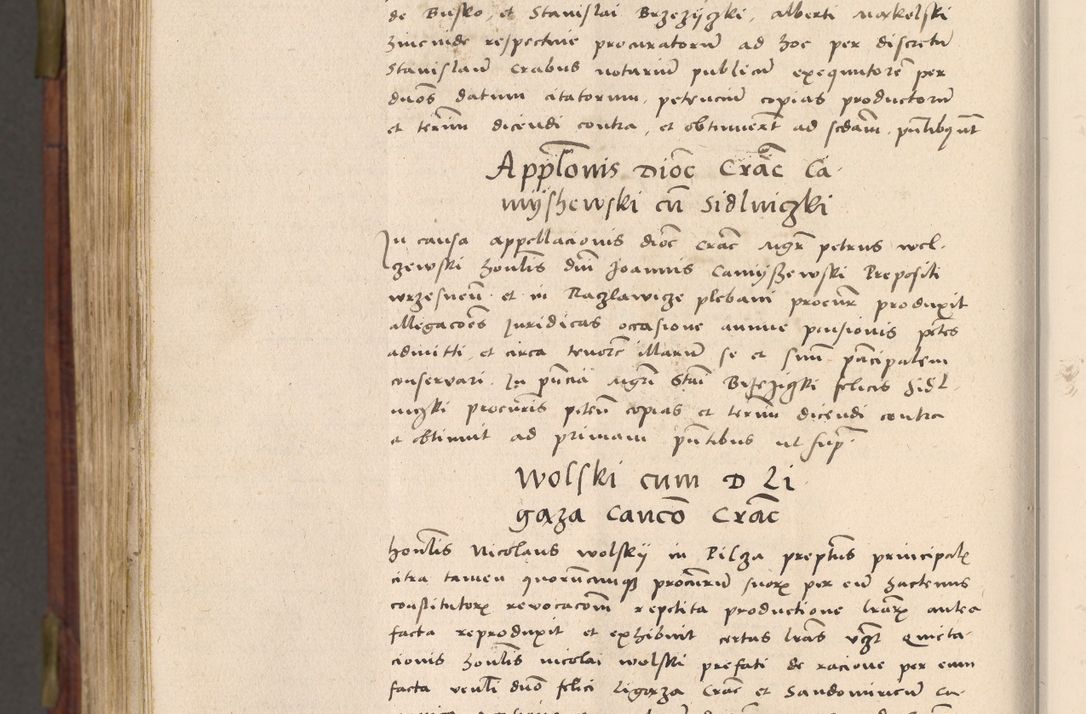 de Busko, et Stanislai Brzezijczki, alberti Markolski
hincinde respective procuratorum ad hoc per discretum
Stanislaum Crabus notarium publicum exequutorem per
duos datum citatorum, petencium copias productorum
et terim dicendi contra, et obtinuerunt ad scdam, pntibq ut
Appltonis Dioc Crac Ca
mijshewski cu Sidlniczki
In causa appellacionis dioc Crac Magr petrus wel-
czewski honlis dni Joannis Camijszewski Prepositi
wrzesnen et in Raczlawicze plebani procur produxit
allegacoes Juridicas occasione annue pensionis petes
admitti, et circa tenore illarum se et suum pncipalem
conservari. In pncia Magri Stani Brzeziczki felicis Sidl-
niczki procuris peten copias et termi dicendi contra
et obtinuit ad primam pntibus ut supr
Wolski cum D Li
gaza Canco Crac
honlis Nicolaus wolskij in Pilza prepstus principalr
citra tamen quorumcumque procurum suorx per eum hactenus
constitutorx revocacom repetita productione lrarx antea
facta reproduxit et exhibuit certas lras vczt quieta-
cionis honlis nicolai wolski prefati de racione per eum
facta venli duo felici Ligaza Crac et Sandomiricum Ca-